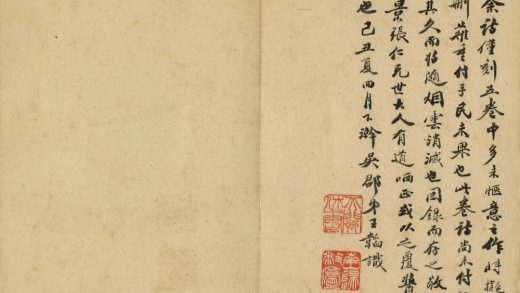 余詩僅刻五卷中多未愜意之作時擬
刪蕹重付手民未果也此卷詩尚未付
其久而將隨烟雲消滅也因錄而存之敬
景張仁兄世大人有道哂正或以之覆醬
也己丑夏四月下澣吳郡弟王韜識